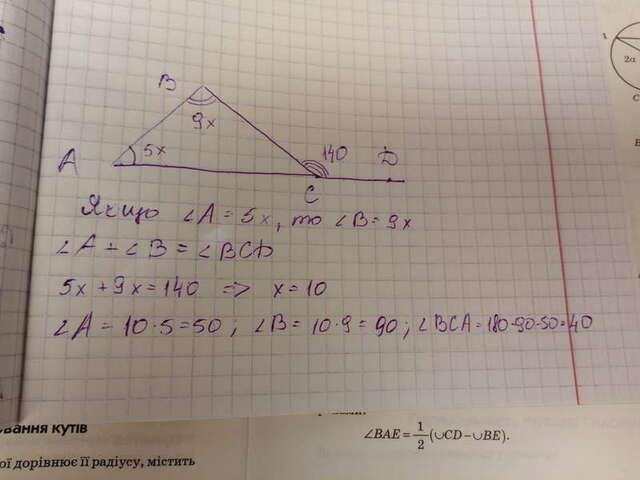 B
9x
5x
A
140
D
C
Якщо ∠A = 5x, то ∠B = 9x
∠A + ∠B = ∠BCD
5x + 9x = 140 => x = 10
∠A = 10·5 = 50; ∠B = 10·9 = 90; ∠BCA = 180-90-50=40
вання кутів
ої дорівнює її радіусу, містить
∠BAE = 1/2 (∪CD – ∪BE).
2α